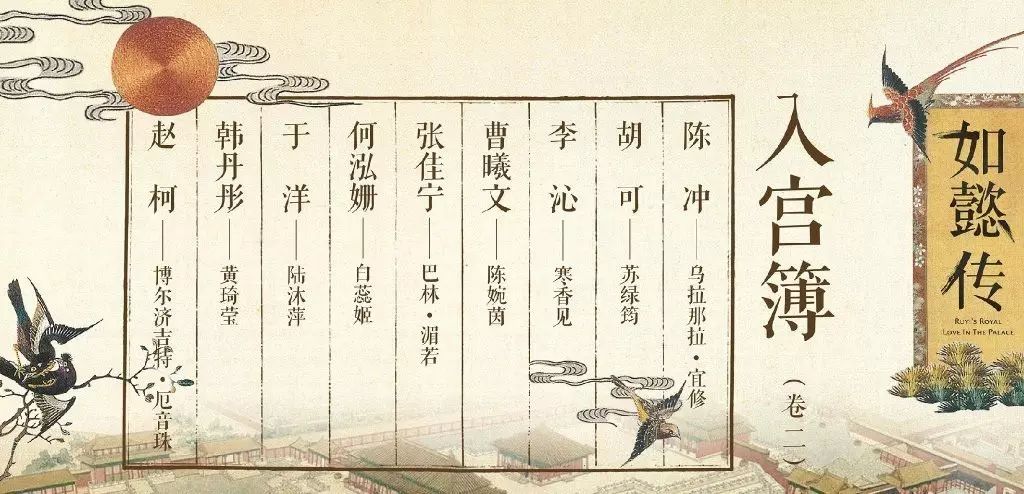 如懿传
RUYI'S ROYAL
LOVE IN THE PALACE
入宫簿(卷二)
陈冲——乌拉那拉·宜修
胡可——苏绿筠
李沁——寒香见
曹曦文——陈婉茵
张佳宁——巴林·湄若
何泓姗——白蕊姬
于洋——陆沐萍
韩丹彤——黄琦莹
赵柯——博尔济吉特·厄音珠